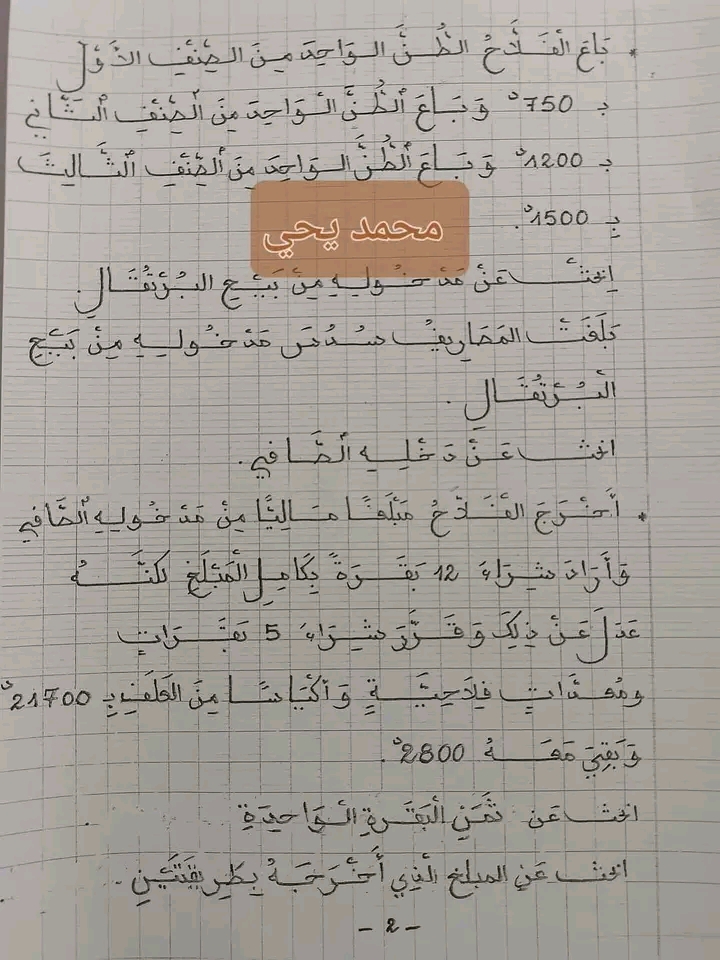 • بَاعَ الْفَلَّاحُ الطُّنَّ الْوَاحِدَ مِنَ الصِّنْفِ الأَوَّلِ
بـ 750د وَ بَاعَ الطُّنَّ الْوَاحِدَ مِنَ الصِّنْفِ الثَّانِي
بـ 1200د وَ بَاعَ الطُّنَّ الْوَاحِدَ مِنَ الصِّنْفِ الثَّالِثَ
بِـ 1500د.
محمد يحي
اِبْحَثْ عَنْ مَدْخُولِهِ مِنْ بَيْعِ الْبُرْتُقَالِ.
بَلَغَتْ المَصَارِيفُ سُدُسَ مَدْخُولِهِ مِنْ بَيْعِ
الْبُرْتُقَالِ.
ابْحَثْ عَنْ دَخْلِهِ الصَّافِي.
• أَخْرَجَ الْفَلَّاحُ مَبْلَغًا مَالِيًّا مِنْ مَدْخُولِهِ الصَّافِي
وَ أَرَادَ شِرَاءَ 12 بَقَرَةً بِكَامِلِ الْمَبْلَغِ لَكِنَّهُ
عَدَلَ عَنْ ذَلِكَ وَ قَرَّرَ شِرَاءَ 5 بَقَرَاتٍ
ومُعِدَّاتٍ فِلَاحِيَّةٍ وَ أَكْيَاسًا مِنَ العَلَفِ بـ 21700د
وَ بَقِيَ مَعَهُ 2800د.
ابْحَثْ عَن ثَمَنِ الْبَقَرَةِ الْوَاحِدَةِ
ابْحَثْ عَنِ المبلغ الَّذِي أَخْرَجَهُ بِطَرِيقَتَيْنِ.
- 2 -